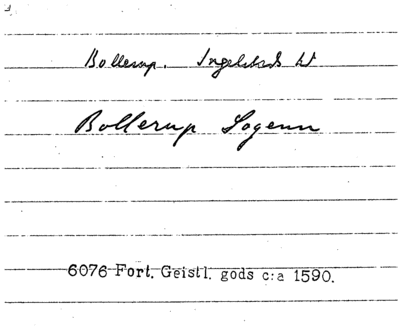 Bollerup. Ingelstads hd
Bollerup Sogenn
6076 Fort. Geistl. gods c:a 1590.